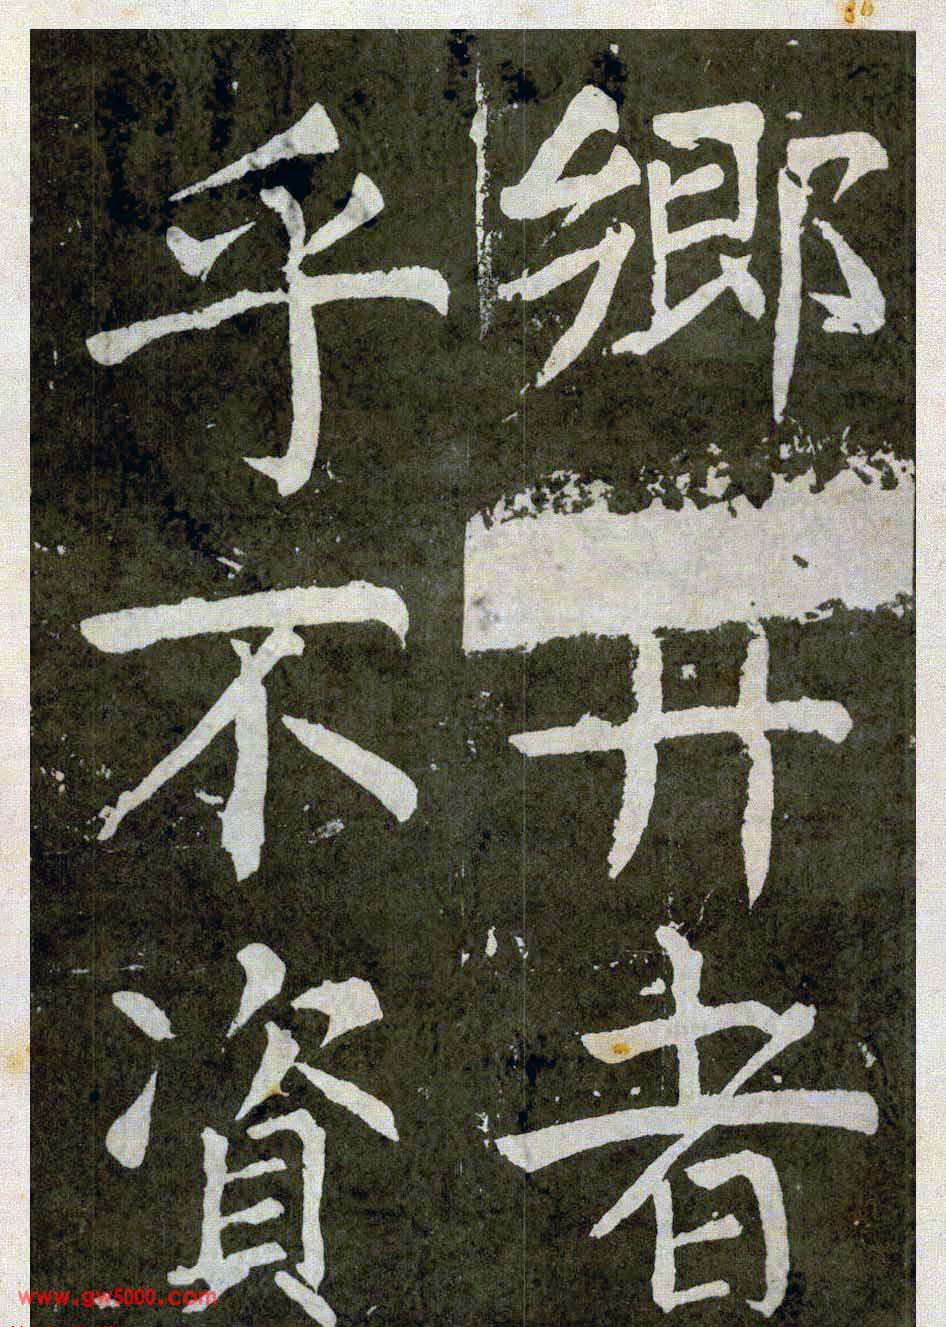 鄉井者
乎不資
www.gw5000.com